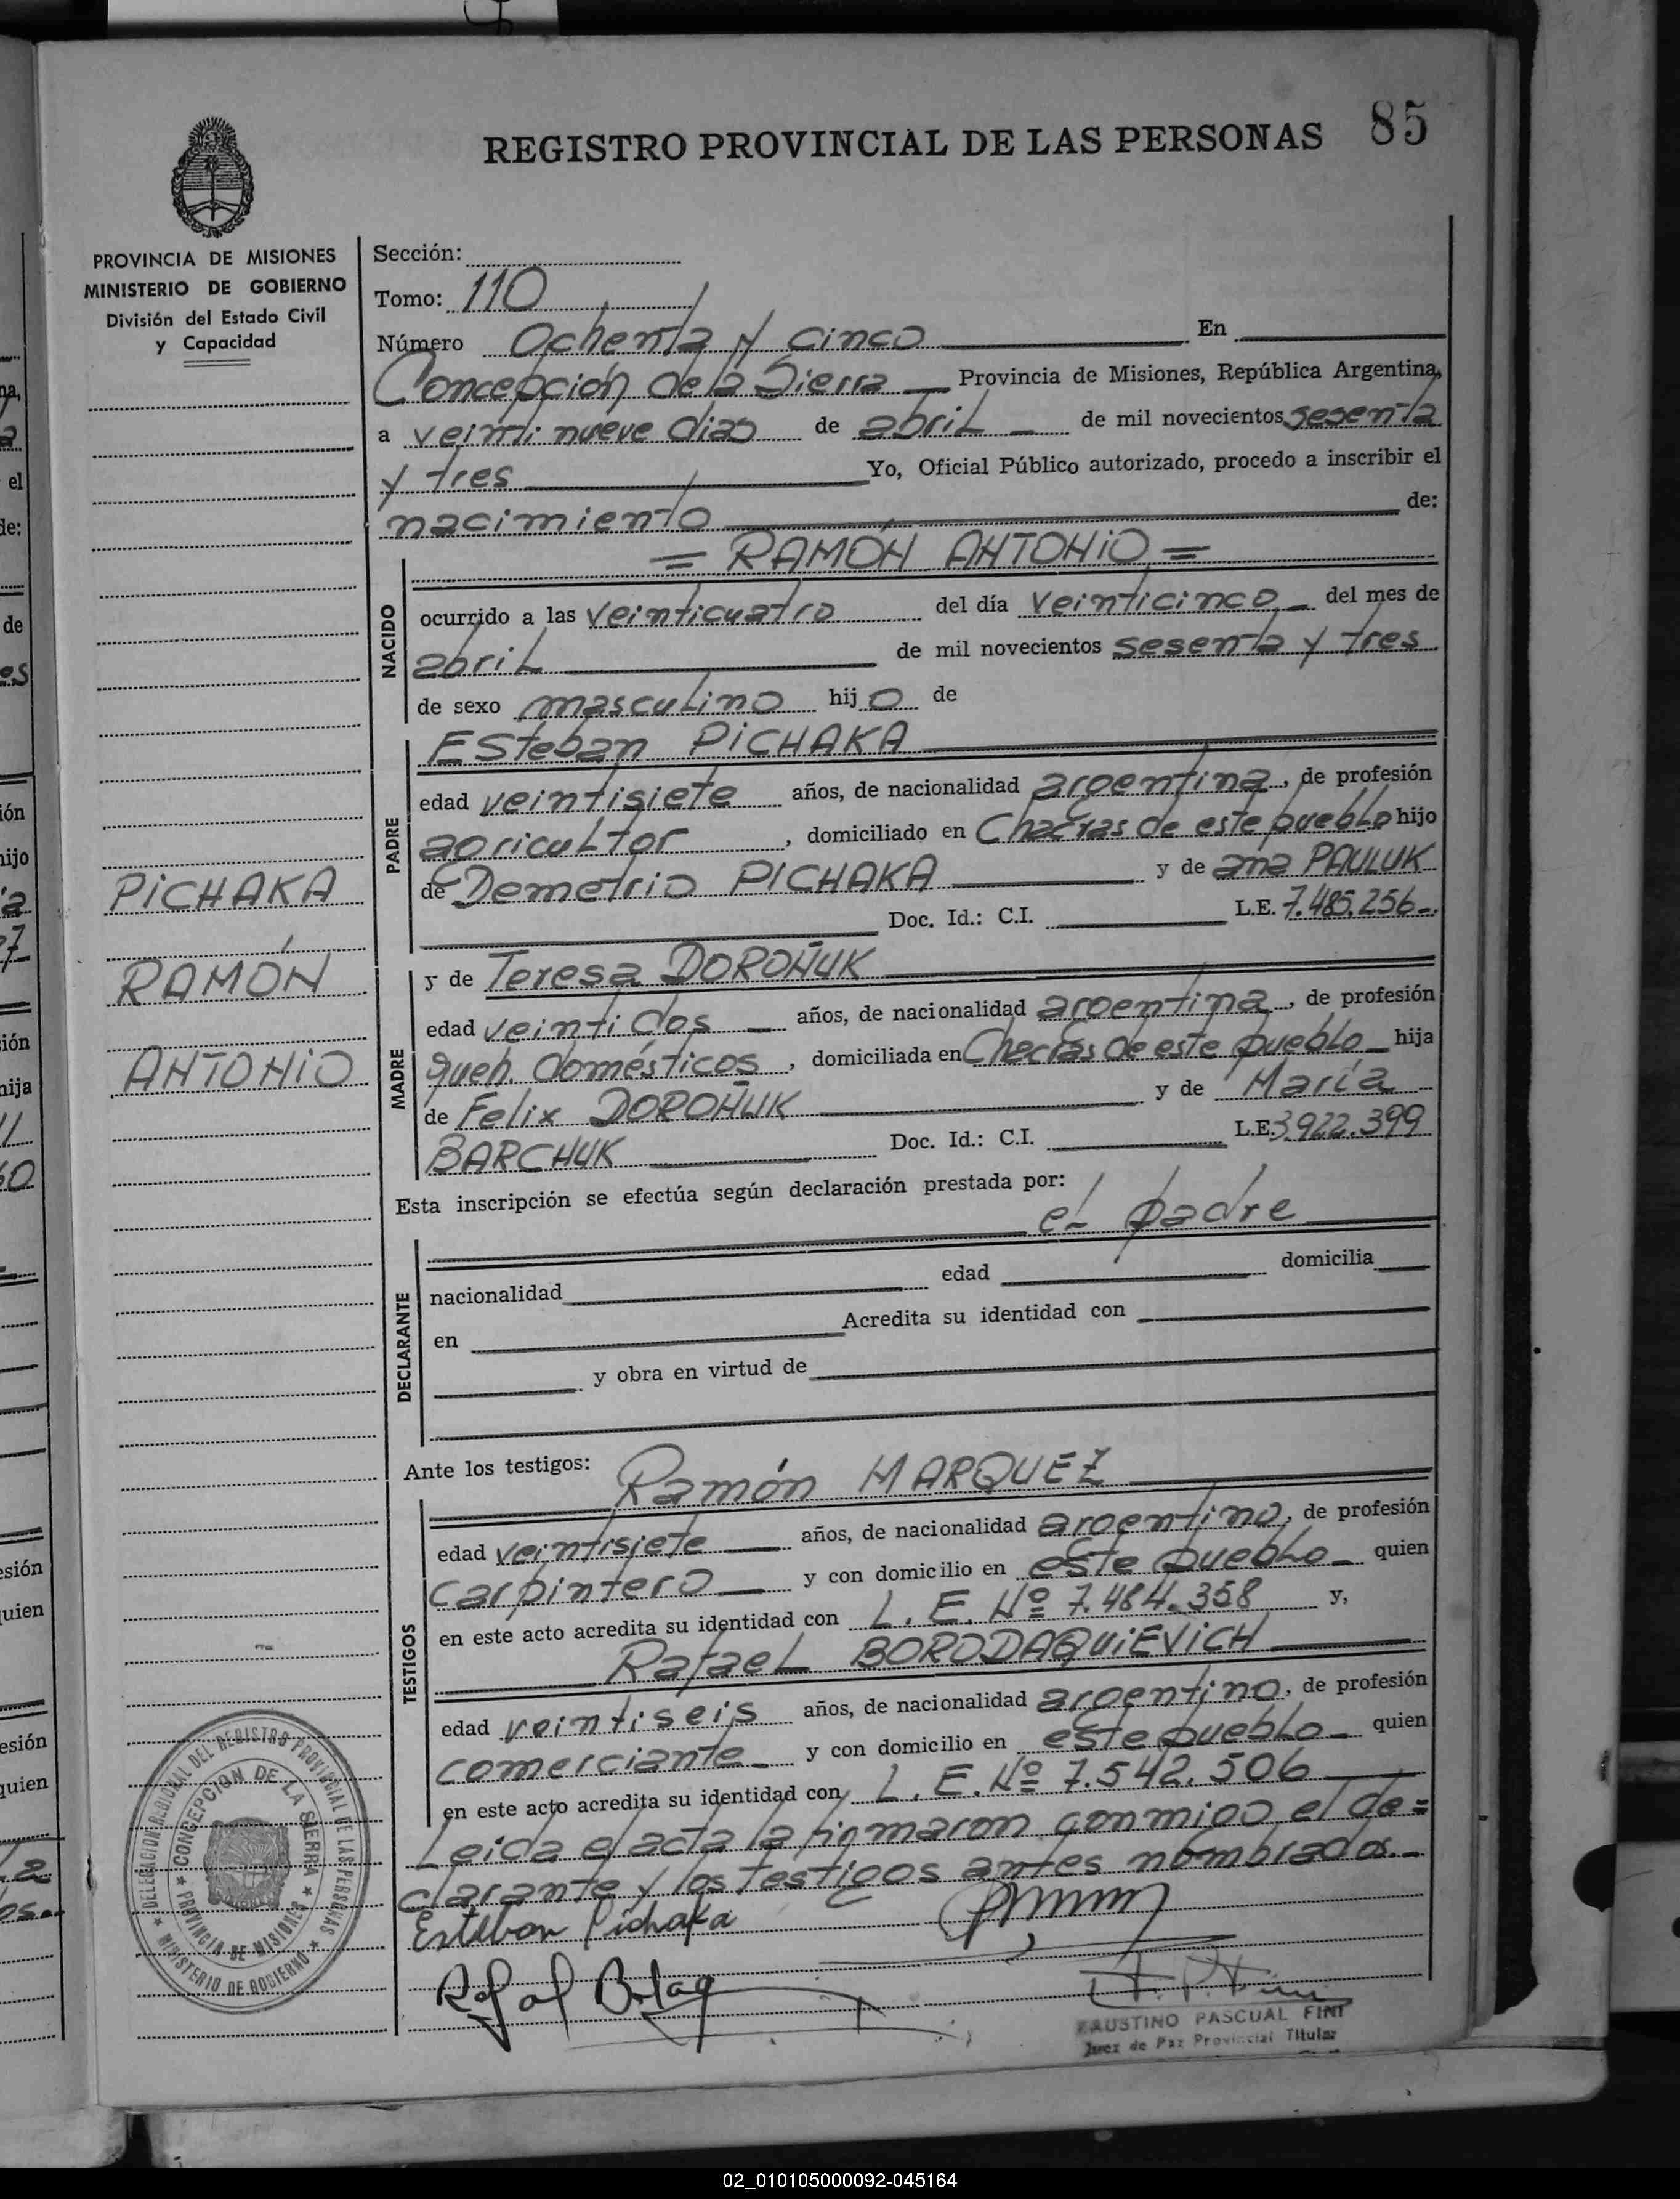 85
REGISTRO PROVINCIAL DE LAS PERSONAS
PROVINCIA DE MISIONES
MINISTERIO DE GOBIERNO
División del Estado Civil
y Capacidad
PICHAKA
RAMÓN
ANTONIO
Sección:
Tomo: 110
Número Ochenta y cinco En
Concepción de la Sierra Provincia de Misiones, República Argentina,
a veinti nueve dias de abril de mil novecientos sesenta
y tres Yo, Oficial Público autorizado, procedo a inscribir el
nacimiento de:
= RAMÓN ANTONIO =
NACIDO
ocurrido a las veinticuatro del día veinticinco del mes de
abril de mil novecientos sesenta y tres
de sexo masculino hijo de
PADRE
Esteban PICHAKA
edad veintisiete años, de nacionalidad argentina, de profesión
agricultor, domiciliado en Chacras de este pueblo hijo
de Demetrio PICHAKA y de ana PAULUK
Doc. Id.: C.I. L.E. 7.485.256-.
MADRE
y de Teresa DOROÑUK
edad veinti dos años, de nacionalidad argentina, de profesión
queh. domésticos, domiciliada en Chacras de este pueblo hija
de Felix DOROÑUK y de María
BARCHUK Doc. Id.: C.I. L.E. 3.922.399
Esta inscripción se efectúa según declaración prestada por:
el padre
DECLARANTE
nacionalidad edad domicilia
en Acredita su identidad con
y obra en virtud de
Ante los testigos: Ramón MARQUEZ
TESTIGOS
edad veintisiete años, de nacionalidad argentino, de profesión
carpintero y con domicilio en este pueblo quien
en este acto acredita su identidad con L.E. Nº 7.484.358 y,
Rafael BORODAQUIEVICH
edad veintiseis años, de nacionalidad argentino, de profesión
comerciante y con domicilio en este pueblo quien
en este acto acredita su identidad con L.E. Nº 7.542.506
Leida el acta la firmaron conmigo el de=
clarante y los testigos antes nombrados.-
Esteban Pichaka
FAUSTINO PASCUAL FINI
Juez de Paz Provincial Titular
DELEGACION REGIONAL DEL REGISTRO PROVINCIAL DE LAS PERSONAS
MINISTERIO DE GOBIERNO
CONCEPCION DE LA SIERRA
PROVINCIA DE MISIONES
02_010105000092-045164